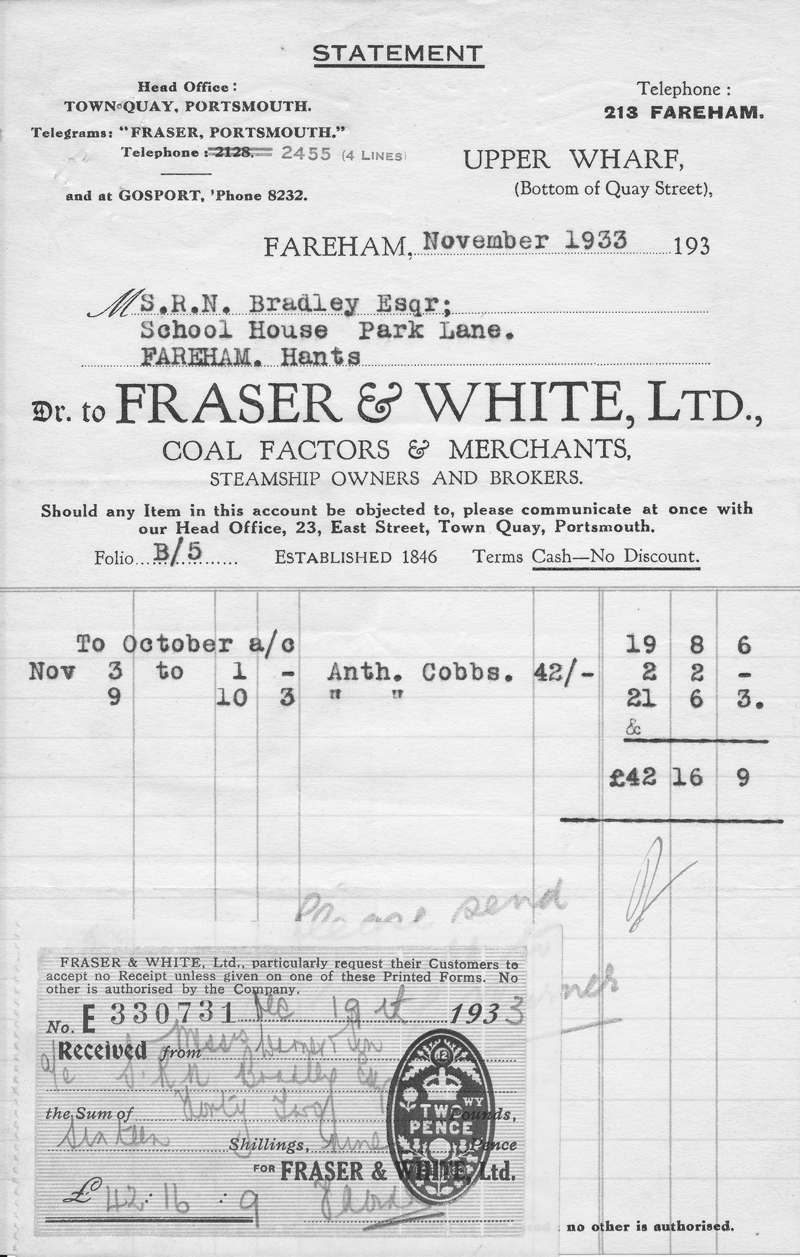 STATEMENT
Head Office:
TOWN QUAY, PORTSMOUTH.
Telegrams: "FRASER, PORTSMOUTH."
Telephone: 2128. 2455 (4 LINES)
and at GOSPORT, 'Phone 8232.
Telephone:
213 FAREHAM.
UPPER WHARF,
(Bottom of Quay Street),
FAREHAM, November 1933 193
M S.R.N. Bradley Esqr;
School House Park Lane.
FAREHAM. Hants
Dr. to FRASER & WHITE, LTD.,
COAL FACTORS & MERCHANTS,
STEAMSHIP OWNERS AND BROKERS.
Should any Item in this account be objected to, please communicate at once with
our Head Office, 23, East Street, Town Quay, Portsmouth.
Folio B/5 ESTABLISHED 1846 Terms Cash—No Discount.
To October a/c 19 8 6
Nov 3 to 1 - Anth. Cobbs. 42/- 2 2 -
9 10 3 " " 21 6 3.
&
£42 16 9
Please send
FRASER & WHITE, Ltd., particularly request their Customers to
accept no Receipt unless given on one of these Printed Forms. No
other is authorised by the Company.
No. E 330731 Dec 19th 1933
Received from Messrs
a/c S.R.N Bradley Esq
the Sum of Forty Two Pounds,
Sixteen Shillings, nine Pence
12
TWO PENCE
FOR FRASER & WHITE, Ltd.
£ 42 : 16 : 9
no other is authorised.